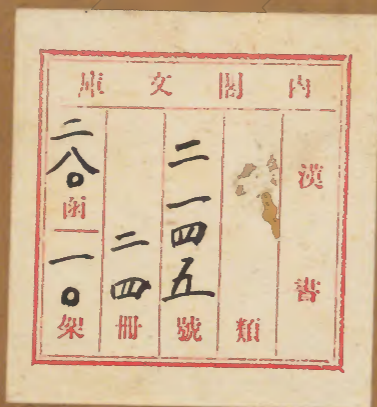 內閣文庫
漢書
類
二一四五號
二四冊
二八〇函
一〇架